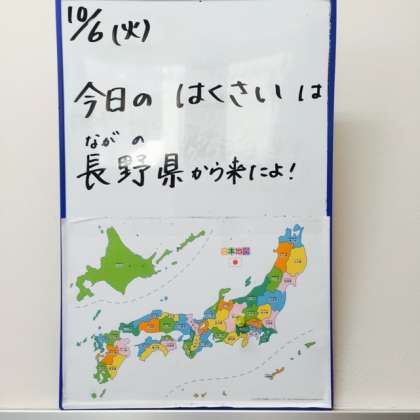 10/6(火)
今日の はくさい は
ながの
長野県から来たよ!
日本地図